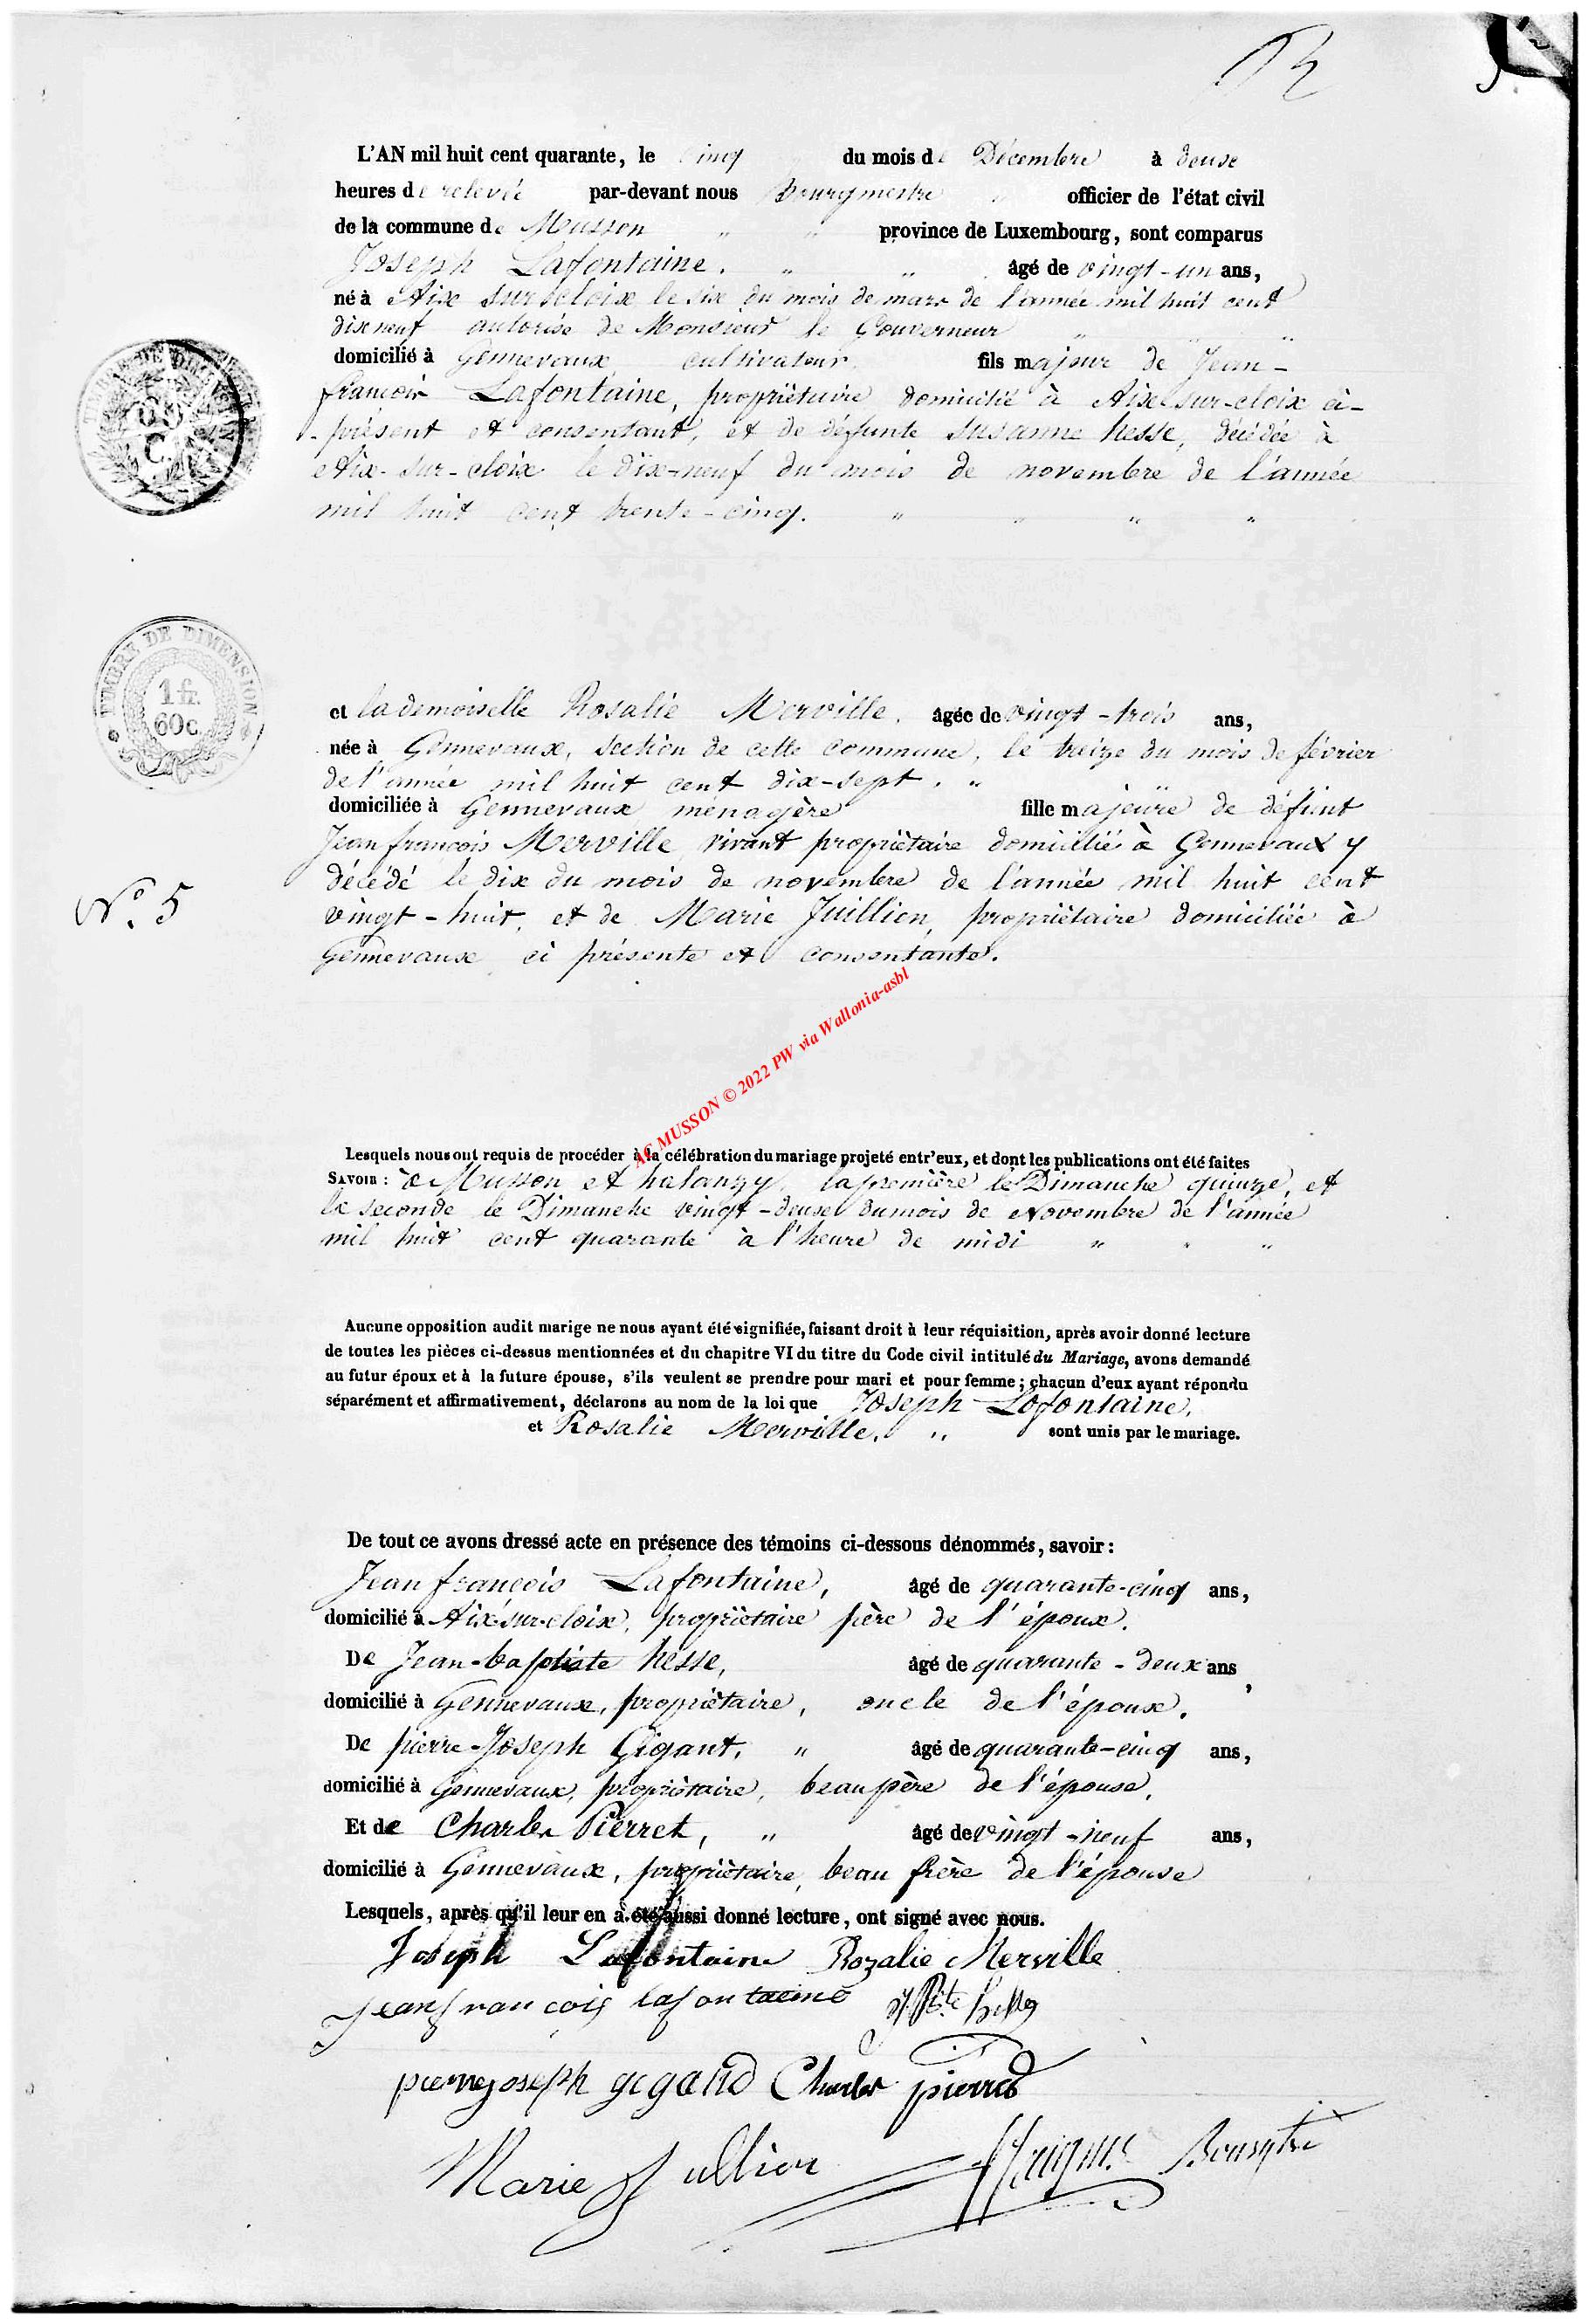 L'AN mil huit cent quarante, le cinq du mois de Décembre à deuxe
heures de relevée par-devant nous Bourgmestre officier de l'état civil
de la commune de Musson " " province de Luxembourg, sont comparus
Joseph Lafontaine. " " âgé de vingt-un ans,
né à Aix sur cloix le six du mois de mars de l'année mil huit cent
dix neuf autorisé de Monsieur le Gouverneur " " "
domicilié à Gennevaux, cultivateur. fils majeur de Jean-
françois Lafontaine, propriétaire domicilié à Aix-sur-cloix ci-
-présent et consentant, et de défunte Susanne hesse, décédée à
Aix-sur-cloix le dix-neuf du mois de novembre de l'année
mil huit cent trente-cinq. " " " "
TIMBRE DE DIMENSION
1 fr.
60c.
et la demoiselle Rosalie Merville. âgée de vingt-trois ans,
née à Gennevaux, section de cette commune, le treize du mois de février
de l'année mil huit cent dix-sept. " "
domiciliée à Gennevaux ménagère fille majeure de défunt
Jean françois Merville vivant propriétaire domicilié à Gennevaux y
décédé le dix du mois de novembre de l'année mil huit cent
N° 5
vingt-huit, et de Marie Juillion, propriétaire domiciliée à
Gennevaux ci présente et consentante.
AC MUSSON © 2022 PW via Wallonia-asbl
Lesquels nous ont requis de procéder à la célébration du mariage projeté entr'eux, et dont les publications ont été faites
SAVOIR : à Musson et halanzy, la première le Dimanche quinze, et
la seconde le Dimanche vingt-deuxe du mois de Novembre de l'année
mil huit cent quarante à l'heure de midi " " "
Aucune opposition audit marige ne nous ayant été signifiée, faisant droit à leur réquisition, après avoir donné lecture
de toutes les pièces ci-dessus mentionnées et du chapitre VI du titre du Code civil intitulé du Mariage, avons demandé
au futur époux et à la future épouse, s'ils veulent se prendre pour mari et pour femme ; chacun d'eux ayant répondu
séparément et affirmativement, déclarons au nom de la loi que Joseph Lafontaine,
et Rosalie Merville. " sont unis par le mariage.
De tout ce avons dressé acte en présence des témoins ci-dessous dénommés, savoir :
Jean françois Lafontaine, âgé de quarante-cinq ans,
domicilié à Aix-sur-cloix, propriétaire père de l'époux.
De Jean-baptiste hesse, âgé de quarante-deux ans,
domicilié à Gennevaux, propriétaire, oncle de l'époux.
De pierre-Joseph Gigant, " âgé de quarante-cinq ans,
domicilié à Gennevaux, propriétaire, beau père de l'épouse,
Et de Charles Pierret, " âgé de vingt-neuf ans,
domicilié à Gennevaux, propriétaire, beau frère de l'épouse
Lesquels, après qu'il leur en a été aussi donné lecture, ont signé avec nous.
Joseph Lafontaine Rozalie Merville
Jean francois lafontaine
pierre joseph gigand Charles pierret
Marie Jullion